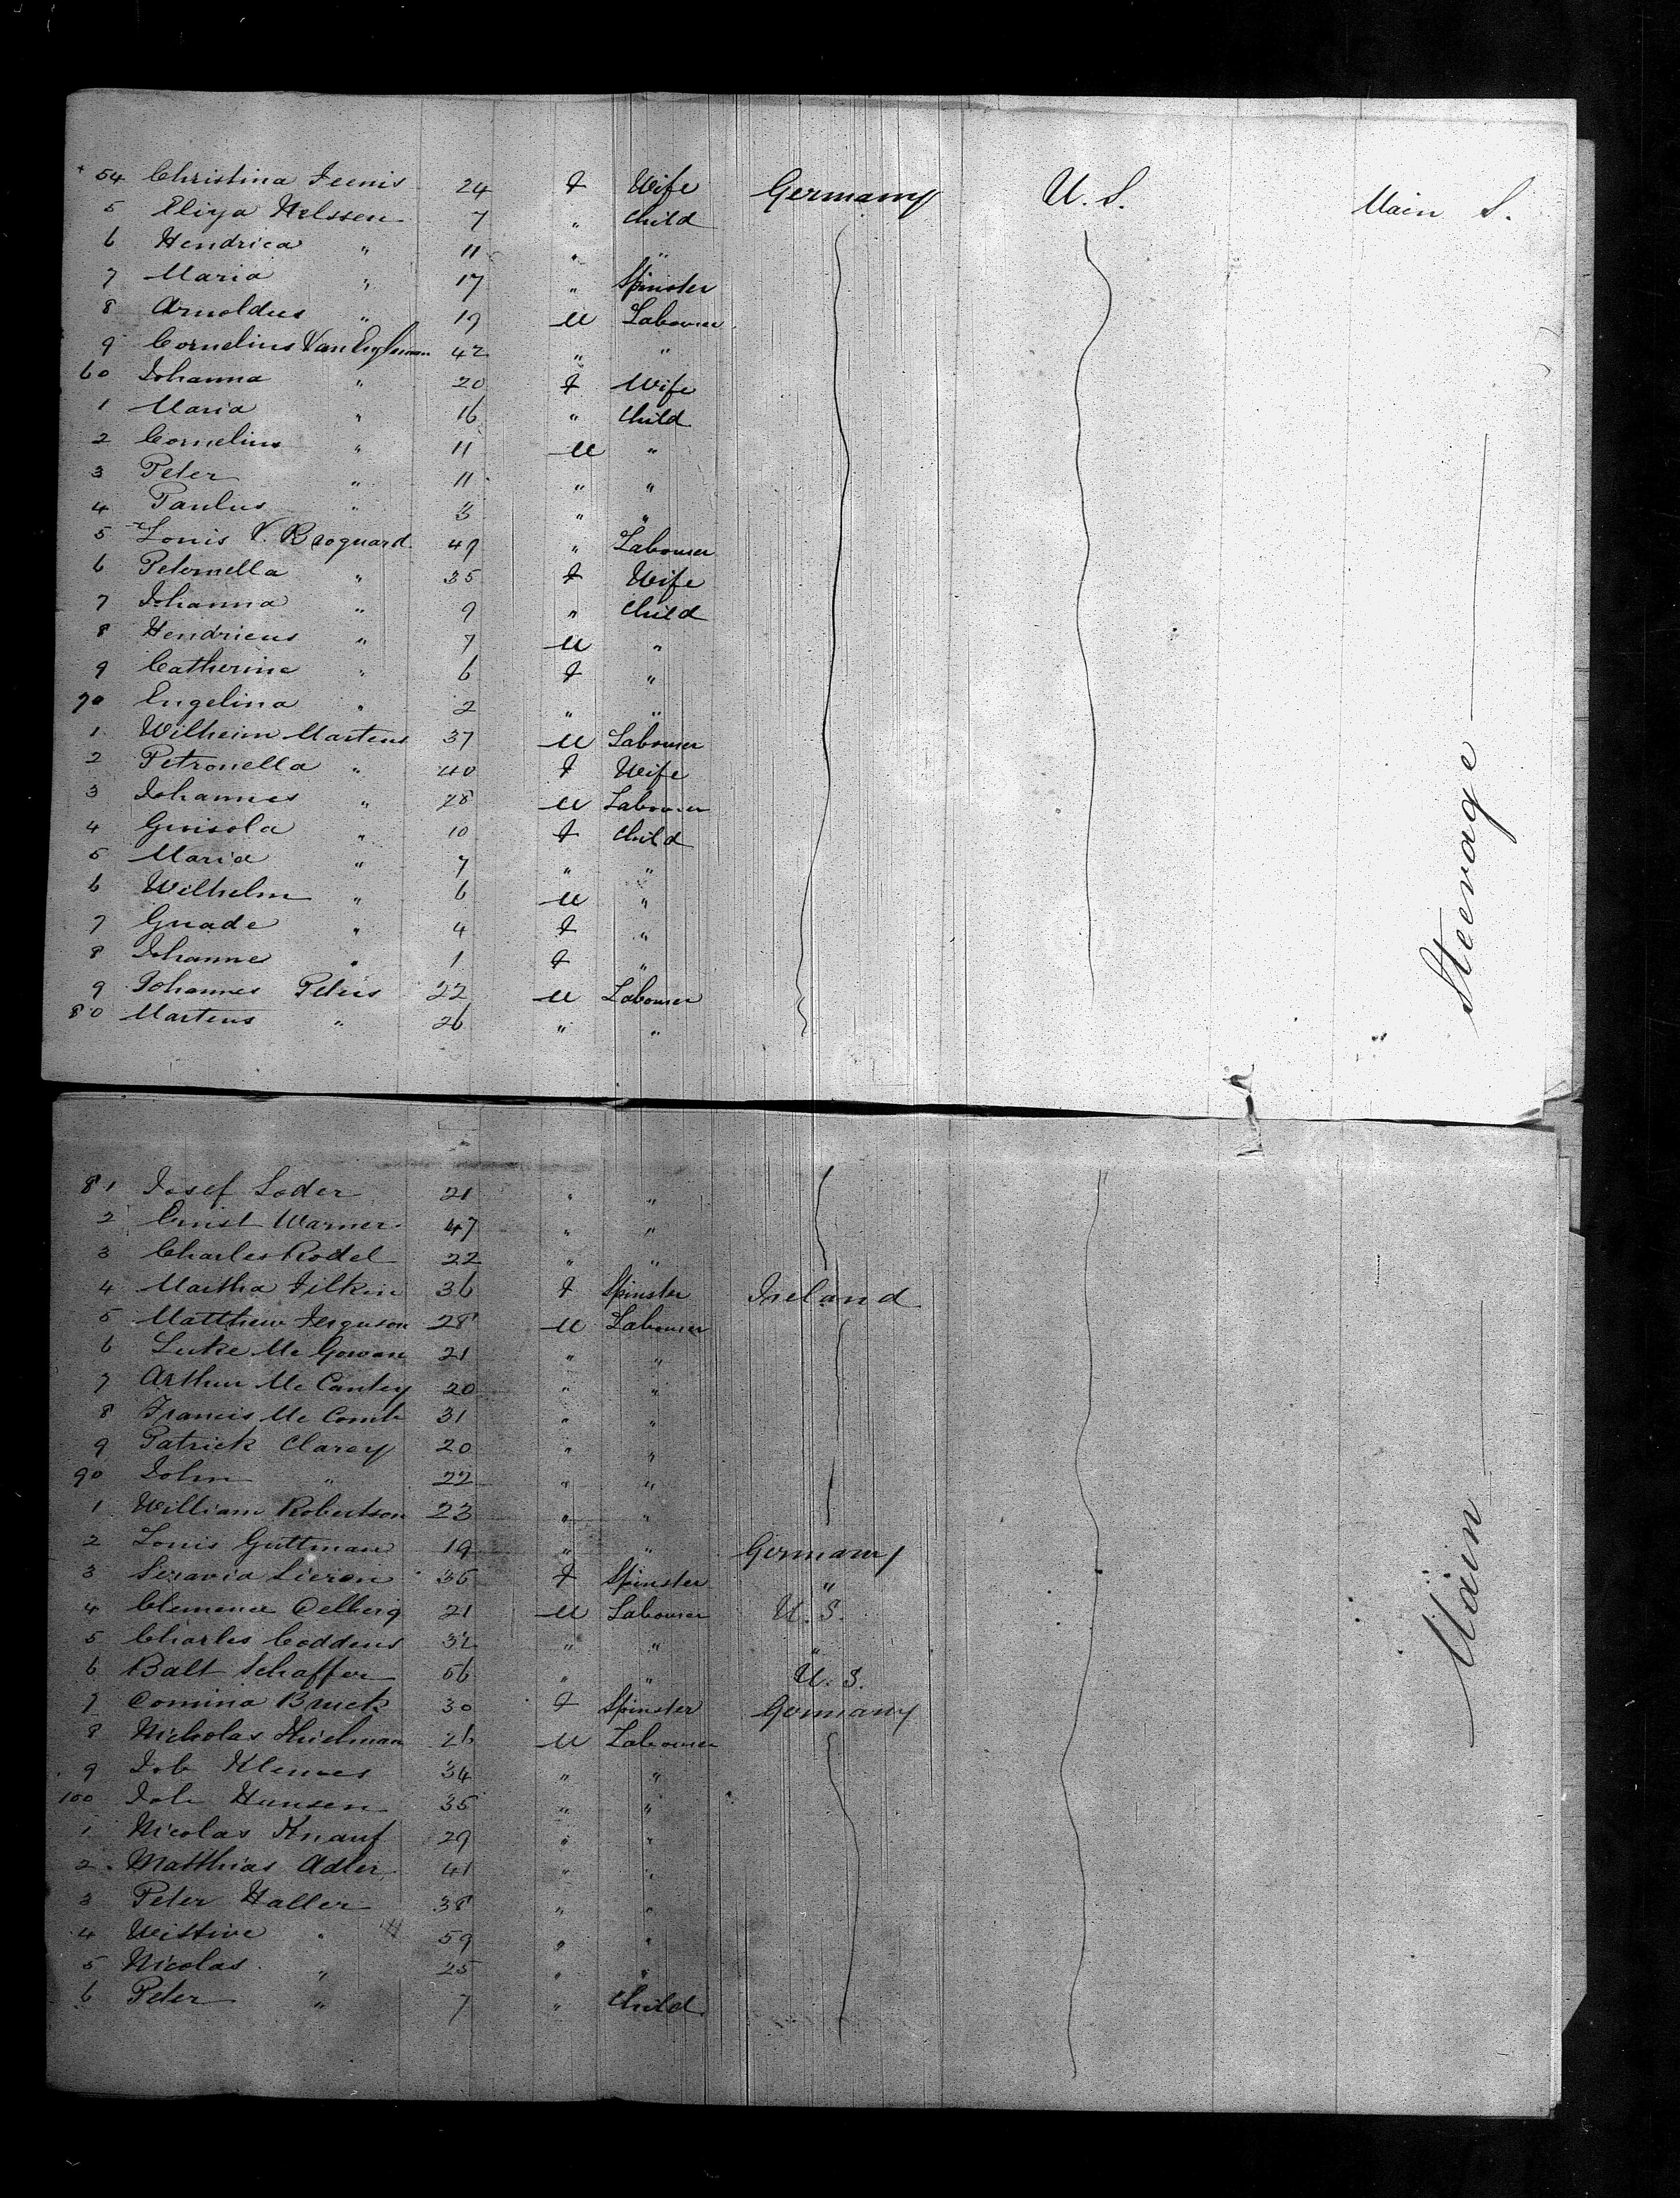 54 Christina Teenis 24 f Wife Germany U. S. Main S.
5 Eliza Nelssen 7 " Child
6 Hendrica " 11 " "
7 Maria " 17 " Spinster
8 Arnoldus " 19 M Labourer
9 Cornelius Van 42 " "
60 Johanna " 20 f Wife
1 Maria " 16 " Child
2 Cornelius " 11 M "
3 Peter " 11 " "
4 Paulus " 3 " "
5 Louis V. Broguard 49 " Labourer
6 Peternella " 35 f Wife
7 Johanna " 9 " Child
8 Hendricus " 7 M "
9 Catherine " 6 f "
70 Engelina " 2 " "
1 Wilheim Martens 37 M Labourer
2 Petronella " 40 f Wife
3 Johannes " 28 M Labourer
4 Grisola " 10 f Child
5 Maria " 7 " "
6 Wilhelm " 6 M "
7 Guade " 4 f "
8 Johanne " 1 f "
9 Johannes Peters 22 M Labourer
80 Martens " 26 " " "
Steerage
81 Josef Loder 21 " "
2 Ernst Warner 47 " "
3 Charles Rodel 22 " "
4 Martha Filkin 36 f Spinster Ireland
5 Matthew Ferguson 28 M Labourer
6 Luke Mc Gowan 21 " "
7 Arthur Mc Cantey 20 " "
8 Francis Mc Comb 31 " "
9 Patrick Clarey 20 " "
90 John " 22 " "
1 William Robertson 23 " "
2 Louis Guttman 19 " " Germany
3 Seravia Lieron 36 f Spinster "
4 Clemence Oelberg 21 M Labourer U. S.
5 Charles Coddens 32 " " "
6 Balt Schaffer 56 " " U. S.
7 Comina Bruck 30 f Spinster Germany
8 Nicholas Thielman 26 M Labourer
9 Joh Klemes 34 " "
100 Joh Hansen 35 " "
1 Nicolas Knauf 29 " "
2 Matthias Adler 41 " "
3 Peter Haller 38 " "
4 " 59 " "
5 Nicolas " 25 " "
6 Peter " 7 " Child
Main